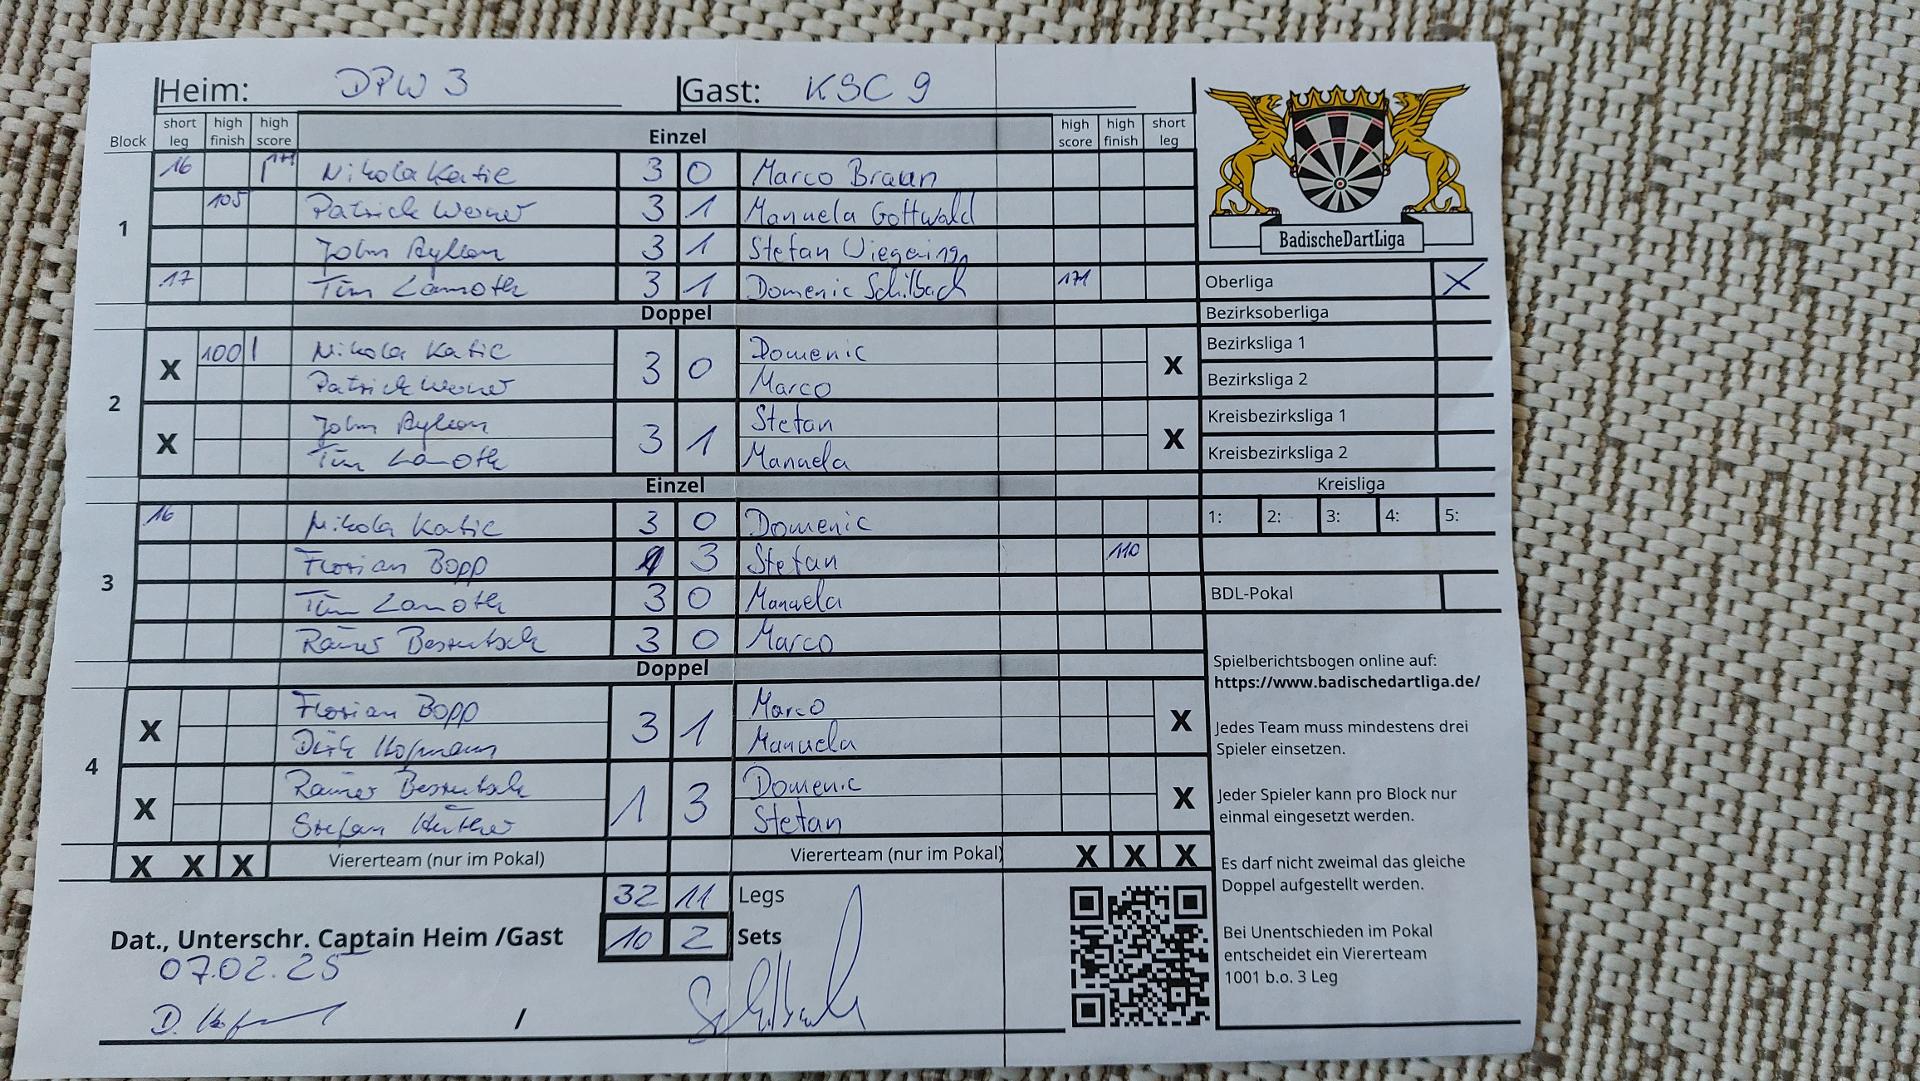 Heim: DPW 3 Gast: KSC 9
Block short leg high finish high score Einzel high score high finish short leg
1
16 171 Nikola Katic 3 0 Marco Braun
105 Patrick Werner 3 1 Manuela Gottwald
John 3 1 Stefan
17 Tim Lamoth 3 1 Domenic Schilbach 171
Doppel
2
X 100 Nikola Katic 3 0 Domenic X
Patrick Werner Marco
X John 3 1 Stefan X
Tim Lamoth Manuela
Einzel
3
16 Nikola Katic 3 0 Domenic
Florian Bopp 1 3 Stefan 110
Tim Lamoth 3 0 Manuela
Rainer 3 0 Marco
Doppel
4
X Florian Bopp 3 1 Marco X
Dirk Hofmann Manuela
X Rainer 1 3 Domenic X
Stefan Stefan
X X X Viererteam (nur im Pokal) Viererteam (nur im Pokal) X X X
32 11 Legs
10 2 Sets
Dat., Unterschr. Captain Heim /Gast
07.02.25
/
BadischeDartLiga
Oberliga X
Bezirksoberliga
Bezirksliga 1
Bezirksliga 2
Kreisbezirksliga 1
Kreisbezirksliga 2
Kreisliga
1: 2: 3: 4: 5:
BDL-Pokal
Spielberichtsbogen online auf:
https://www.badischedartliga.de/
Jedes Team muss mindestens drei
Spieler einsetzen.
Jeder Spieler kann pro Block nur
einmal eingesetzt werden.
Es darf nicht zweimal das gleiche
Doppel aufgestellt werden.
Bei Unentschieden im Pokal
entscheidet ein Viererteam
1001 b.o. 3 Leg